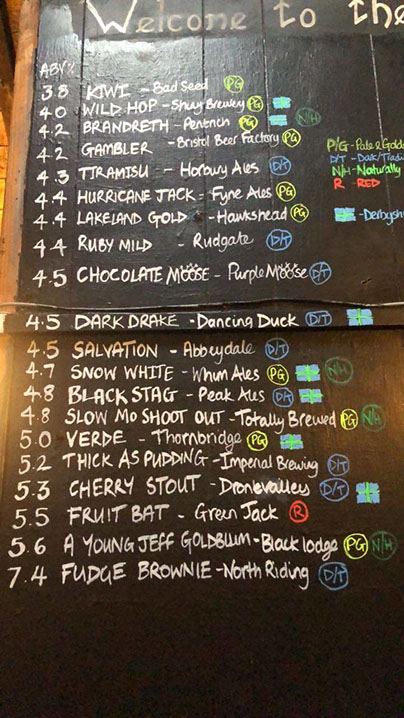 Welcome to the
ABV%
3.8 KIWI - Bad Seed PG
4.0 WILD HOP - Brewery PG
4.2 BRANDRETH - Pentrich PG N/H
4.2 GAMBLER - Bristol Beer Factory PG
4.3 TIRAMISU - Horbury Ales D/T
4.4 HURRICANE JACK - Fyne Ales PG
4.4 LAKELAND GOLD - Hawkshead PG
4.4 RUBY MILD - Rudgate D/T
4.5 CHOCOLATE MOOSE - Purple Moose D/T
4.5 DARK DRAKE - Dancing Duck D/T
4.5 SALVATION - Abbeydale D/T
4.7 SNOW WHITE - Whim Ales PG N/H
4.8 BLACK STAG - Peak Ales D/T
4.8 SLOW MO SHOOT OUT - Totally Brewed PG N/H
5.0 VERDE - Thornbridge PG
5.2 THICK AS PUDDING - Imperial Brewing D/T
5.3 CHERRY STOUT - Dronevalley D/T
5.5 FRUIT BAT - Green Jack R
5.6 A YOUNG JEFF GOLDBLUM - Black lodge PG N/H
7.4 FUDGE BROWNIE - North Riding D/T
P/G - Pale & Golde
D/T - Dark/Tradi
N/H - Naturally
R - RED
- Derbysh